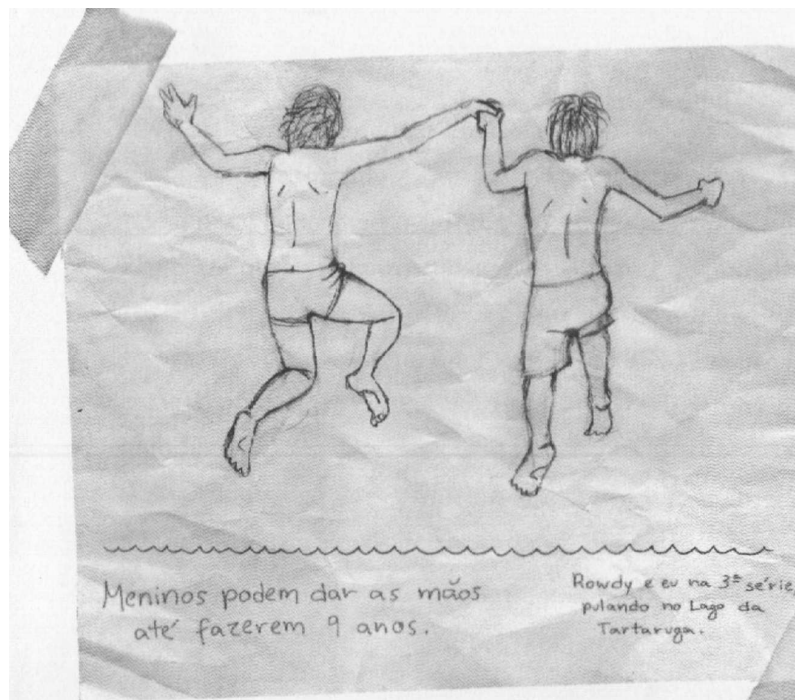 Meninos podem dar as mãos
até fazerem 9 anos.
Rowdy e eu na 3ª série,
pulando no Lago da
Tartaruga.